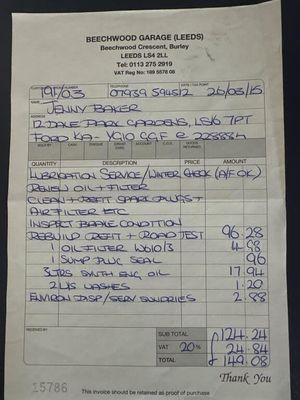 BEECHWOOD GARAGE (LEEDS)
Beechwood Crescent, Burley
LEEDS LS4 2LL
Tel: 0113 275 2919
VAT Reg No: 189 5578 08
19/03 07939 594512 26/03/15
NAME JENNY BAKER
ADDRESS 12 DALE PARK GARDENS, LS16 7PT
FORD KA - YG10 CGF @ 22888
SOLD BY CASH C.O.D.
QUANTITY DESCRIPTION PRICE AMOUNT
LUBRICATION SERVICE/WINTER CHECK (A/F OK)
RENEW OIL + FILTER
CLEAN + REFIT SPARK PLUGS +
AIR FILTER ETC
INSPECT BRAKE CONDITION
REBUILD REFIT + ROAD TEST 96.28
1 OIL FILTER W610/3 4.98
1 SUMP PLUG SEAL 96
3 LTRS SYNTH ENG OIL 17.94
2 WASHES 1.20
ENVIRON DISP/SERV SUNDRIES 2.88
RECEIVED BY
SUB TOTAL £124.24
VAT 20% 24.84
TOTAL £149.08
Thank You
15786
This invoice should be retained as proof of purchase